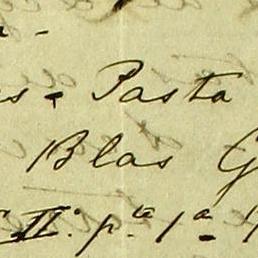 s. Pasta
Blas G
II. p.ta 1a